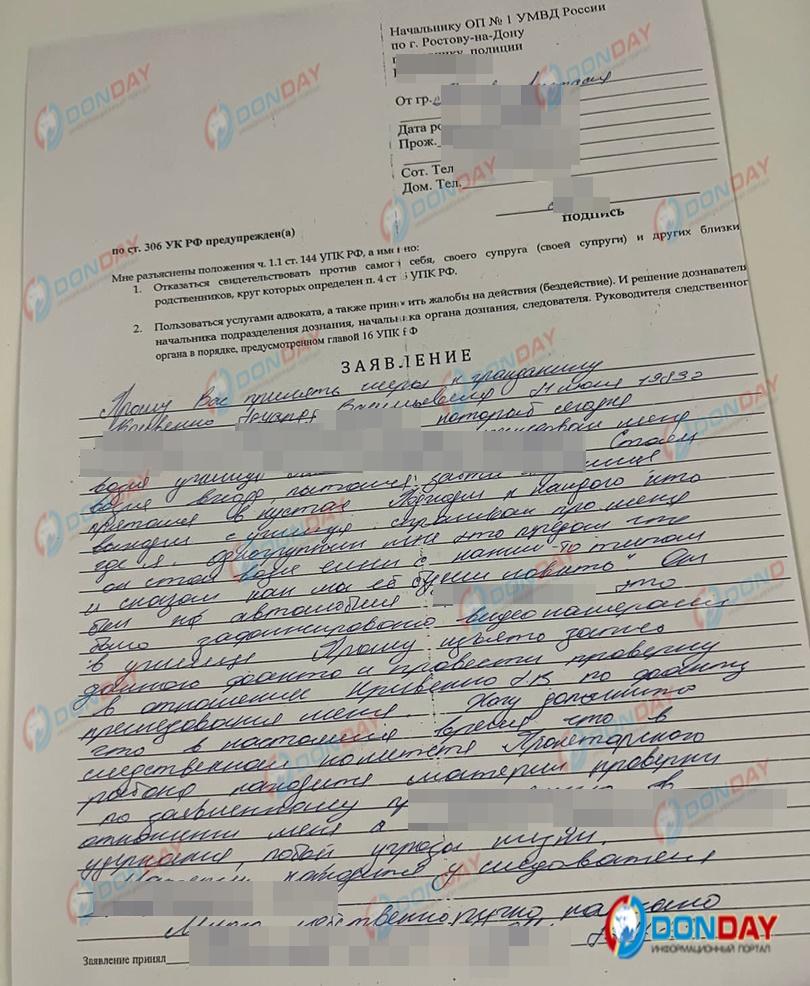 Начальнику ОП № 1 УМВД России
по г. Ростову-на-Дону
полиции
От гр.
Дата ро
Прож.
Сот. Тел
Дом. Тел.
подпись
по ст. 306 УК РФ предупрежден(а)
Мне разъяснены положения ч. 1.1 ст. 144 УПК РФ, а именно:
1. Отказаться свидетельствовать против самого себя, своего супруга (своей супруги) и других близки
родственников, круг которых определен п. 4 ст 5 УПК РФ.
2. Пользоваться услугами адвоката, а также приносить жалобы на действия (бездействие). И решение дознавателя
начальника подразделения дознания, начальника органа дознания, следователя. Руководителя следственног
органа в порядке, предусмотренном главой 16 УПК РФ
ЗАЯВЛЕНИЕ
Прошу Вас принять меры к гражданину
Васильевича 11 июля 1983г
который сегодня
возле училища преследовал меня
Стоял
возле входа, пытался зайти
прятался в кустах Подходил к каждого кто
выходил с училища спрашивал про меня
где я. Одногрупники мне это предали что
он стоял возле елки с каким-то типом
и сказал как мы её будем ловить" Он
был на автомобиле это
было зафиксировано видео камерами
в училище Прошу изъять запись
данного факта и провести проверку
в отношении по факту
преследования меня. Хочу дополнить
что в настоящее время что в
следственном комитете Пролетарского
района находится материал проверки
по заявленному в
отношении меня а
удержания, побои угрозы жизни.
находится у следователя
Мною собственноручно написано
Заявление принял
DONDAY
ИНФОРМАЦИОННЫЙ ПОРТАЛ